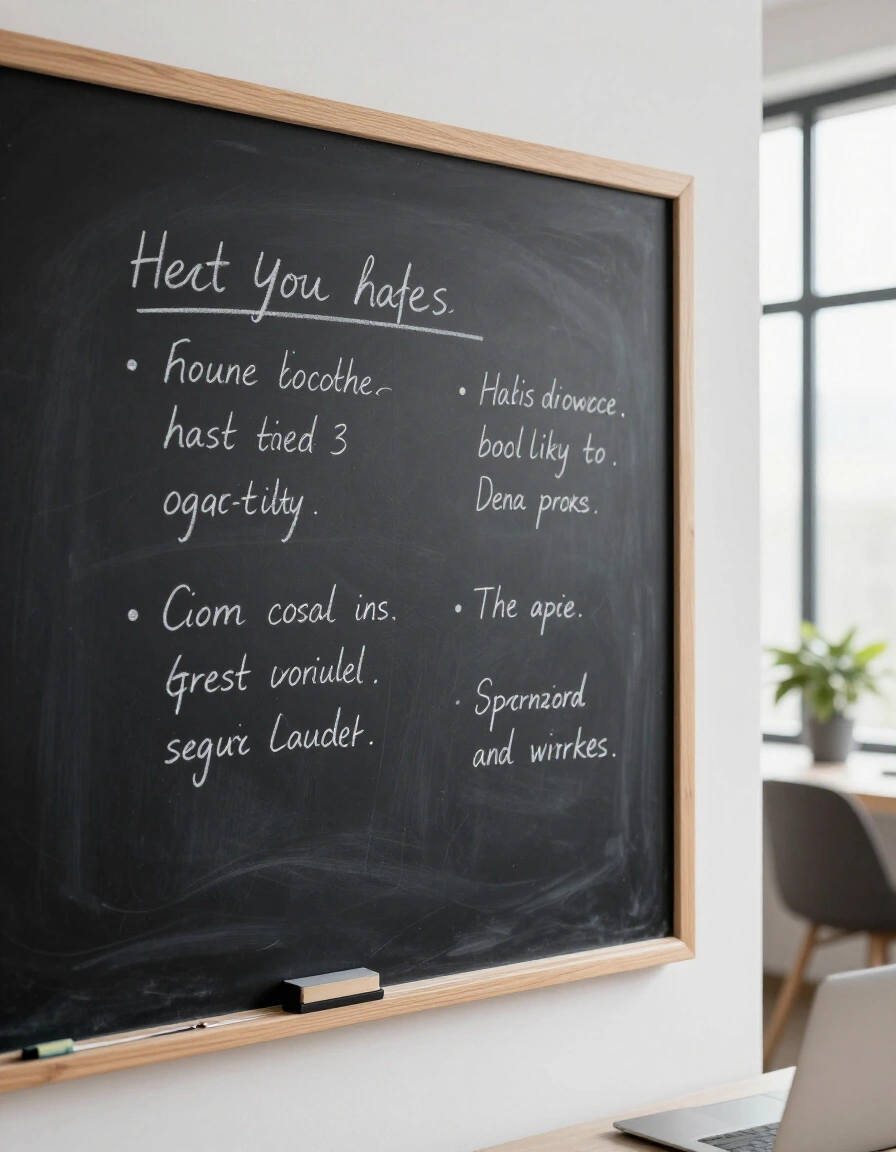 Hect You hafes.
• Foune tocothe
hast tried 3
ogac-tilty.
• Ciom cosal ins.
Grest voriulel.
segur Laudet.
• Hatis diowcce.
bool liky to.
Dena proks.
• The apie.
• Sprrnzord
and wirrkes.